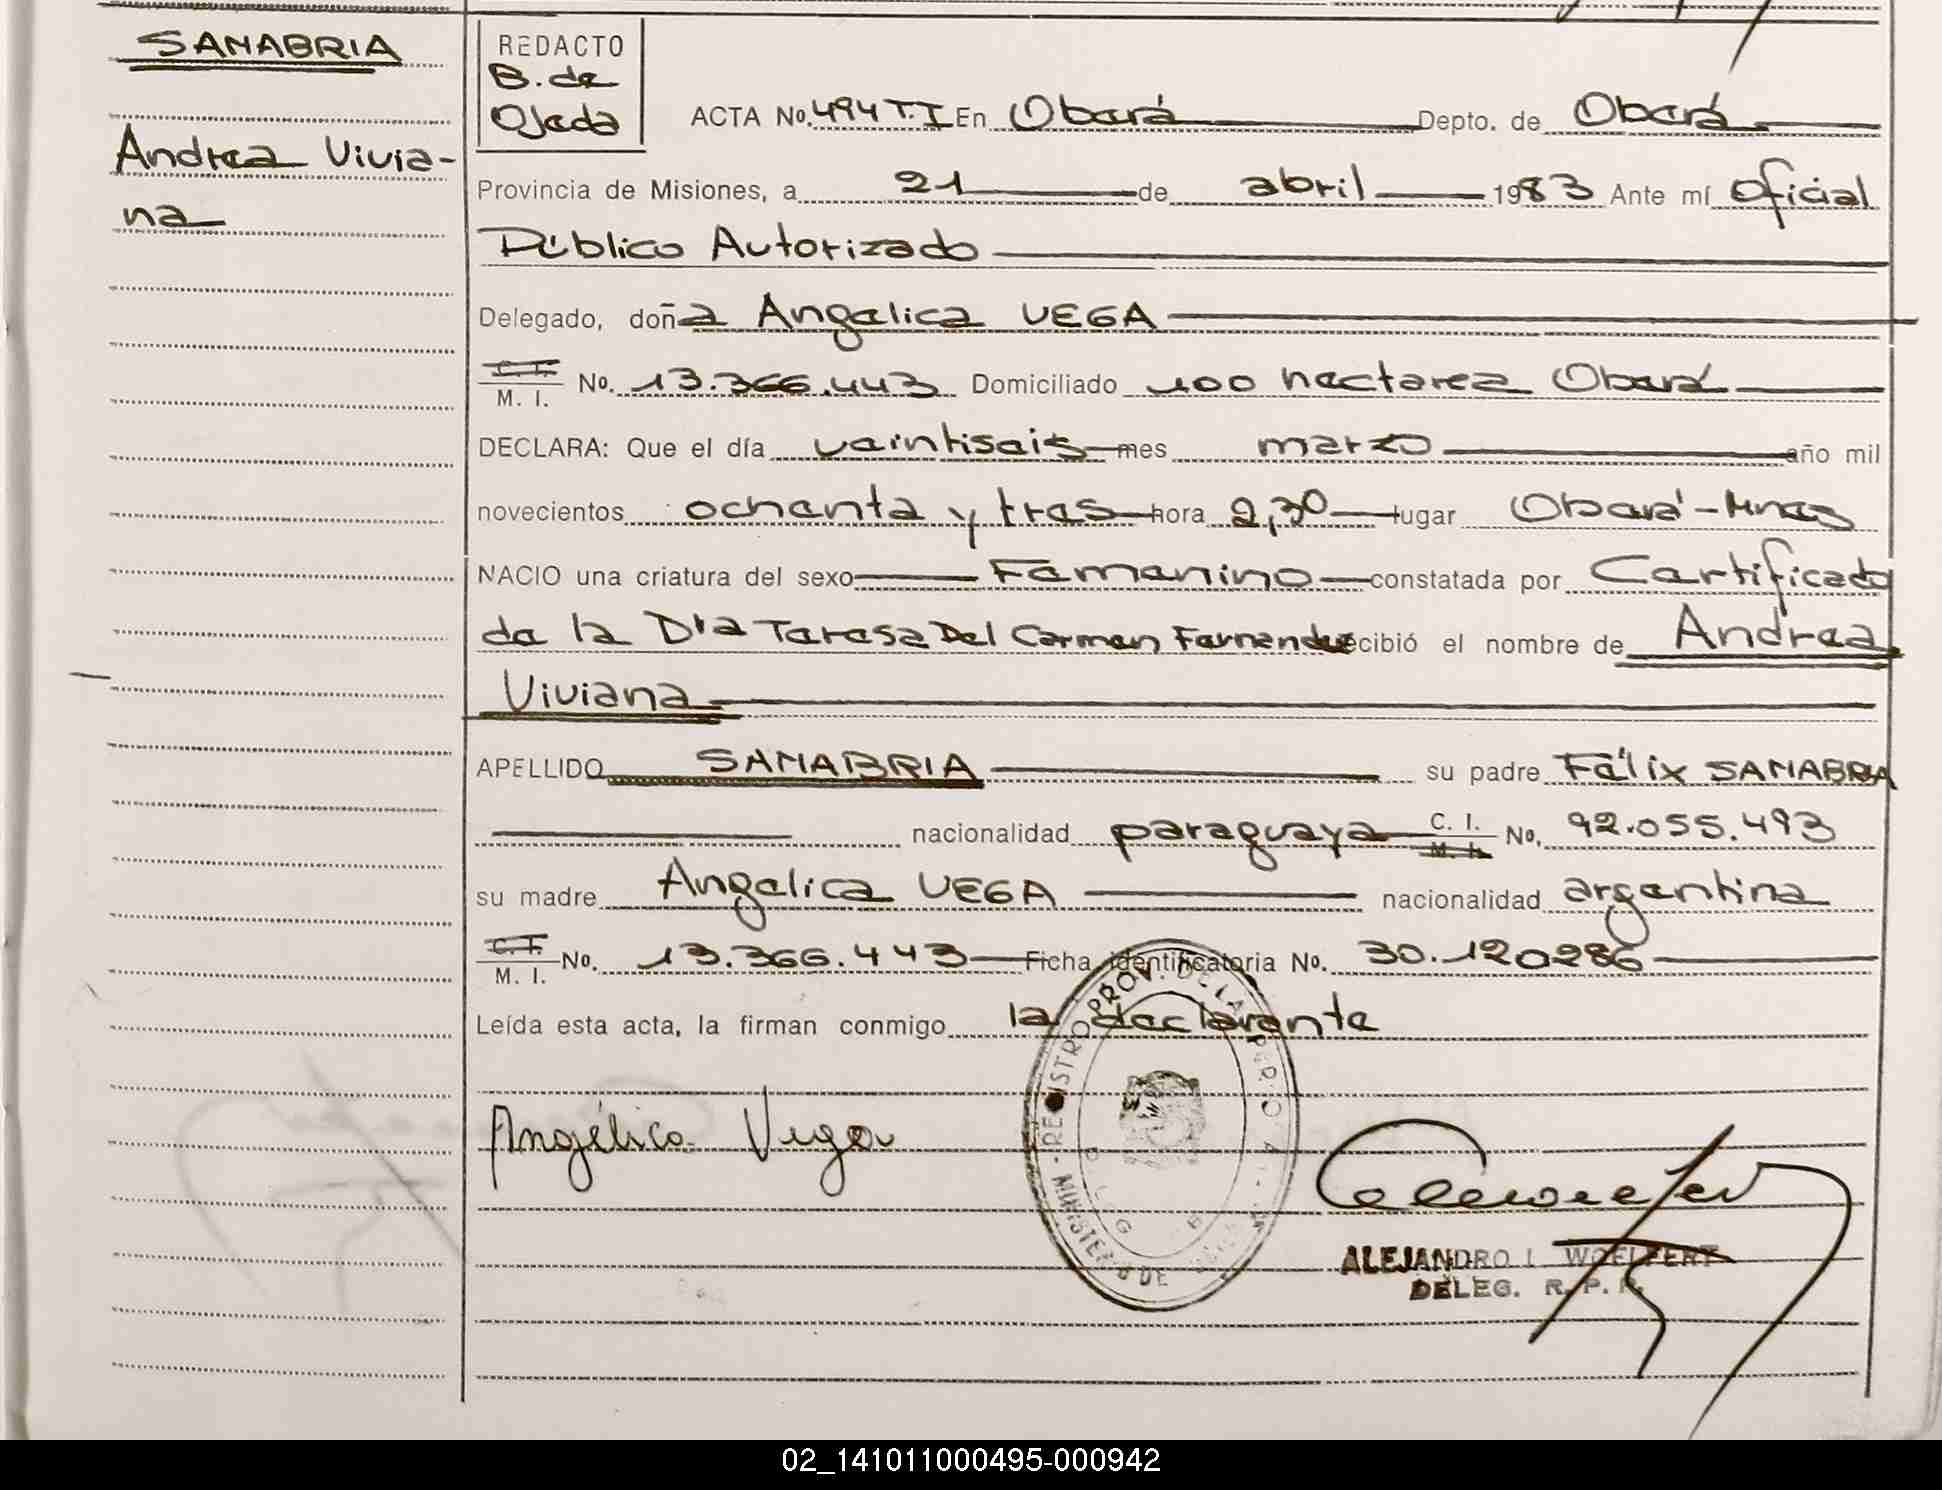 SANABRIA
Andrea Vivia-
na
REDACTO
B. de
Ojeda
ACTA No. 494 T.I En Oberá Depto. de Oberá
Provincia de Misiones, a 21 de abril 1983 Ante mí oficial
Público Autorizado
Delegado, doña Angelica VEGA
C. I.
M. I. No. 13.366.443 Domiciliado 100 hectarea Oberá
DECLARA: Que el día veintiseis mes marzo año mil
novecientos ochenta y tres hora 2,30 lugar Oberá-Mnes
NACIO una criatura del sexo Femenino constatada por Certificado
de la Dra Teresa Del Carmen Fernandez recibió el nombre de Andrea
Viviana
APELLIDO SANABRIA su padre Félix SANABRIA
nacionalidad paraguaya C. I. M. I. No. 92.055.493
su madre Angelica VEGA nacionalidad argentina
C. I.
M. I. No. 13.366.443 Ficha identificatoria No. 30.120286
Leída esta acta, la firman conmigo la declarante
REGISTRO PROV. DE LAS PER
MINISTERIO DE
Angélica Vega
ALEJANDRO I. WOELFERT
DELEG. R. P. P.
02_141011000495-000942